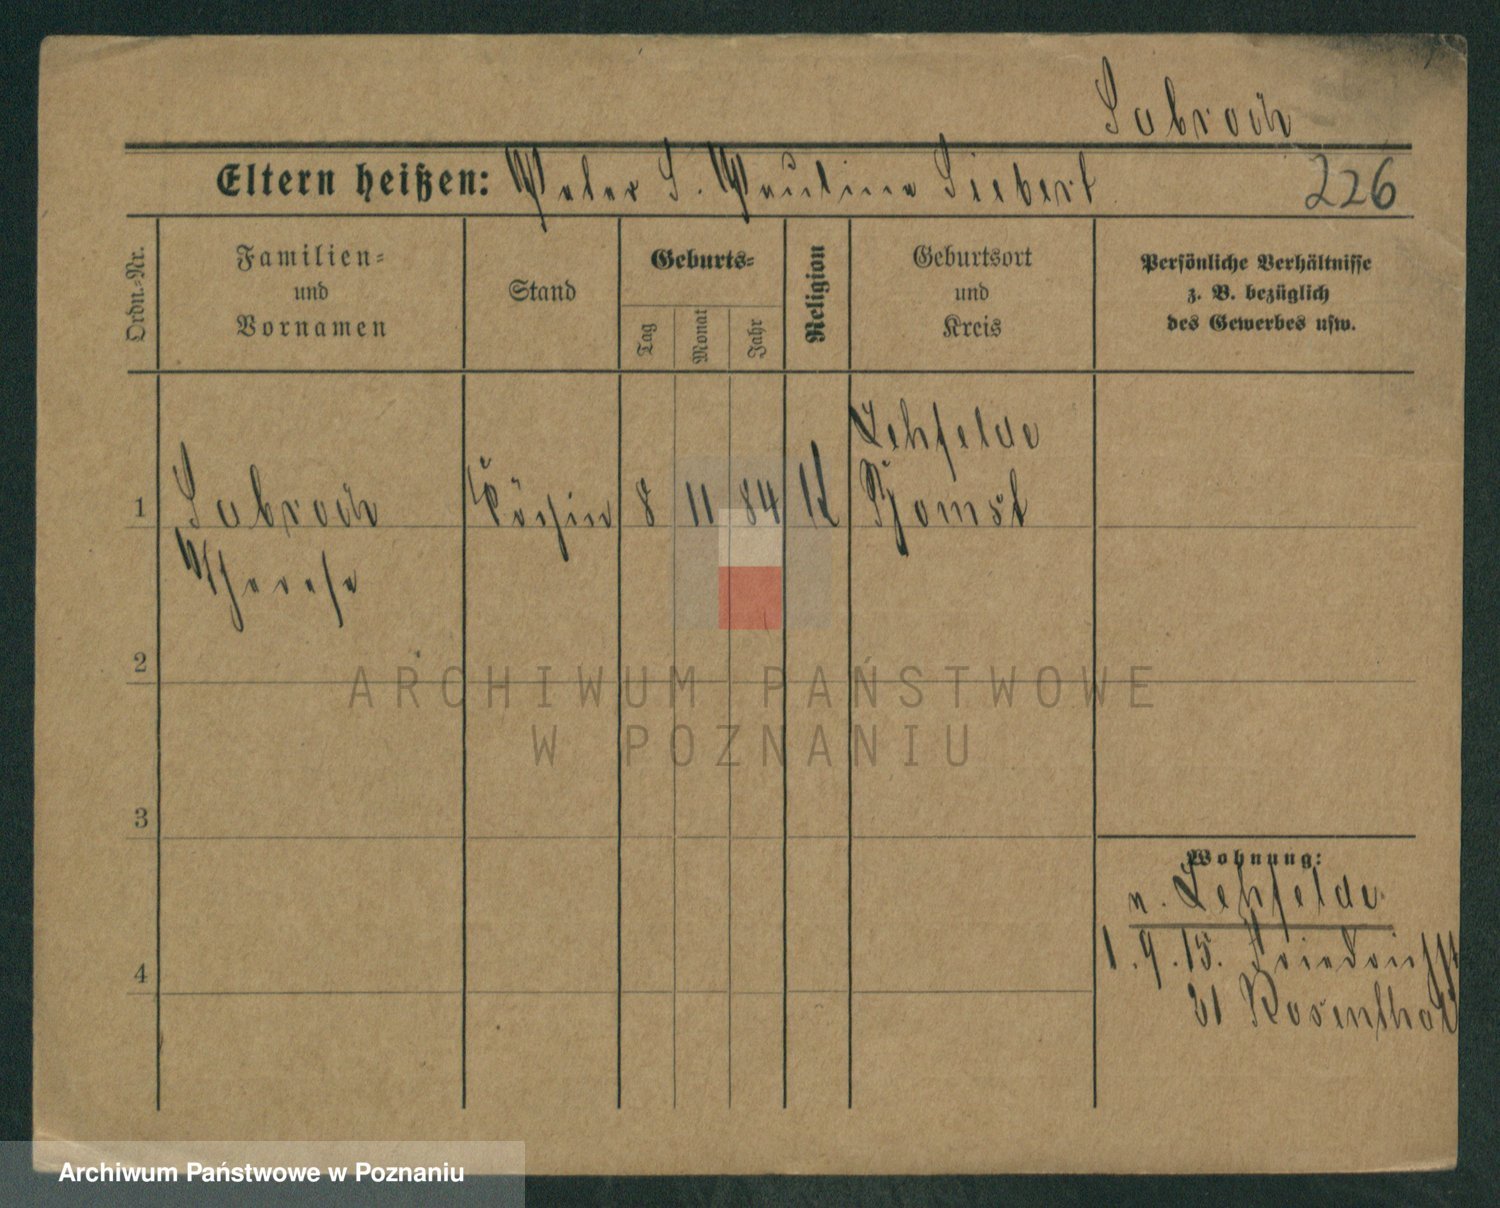 Sobroch
Eltern heißen: Peter S. Pauline Siebert
226
Ordn.-Nr.
Familien-
und
Vornamen
Stand
Geburts-
Tag
Monat
Jahr
Religion
Geburtsort
und
Kreis
Persönliche Verhältnisse
z. B. bezüglich
des Gewerbes usw.
Lehfelde
1 Sobroch Köchin 8 11 84 k Bomst
Therese
2
ARCHIWUM PAŃSTWOWE
W POZNANIU
3
Wohnung:
n. Lehfelde
4
1.9.15. Friedrichst
21 Rosenthal
Archiwum Państwowe w Poznaniu